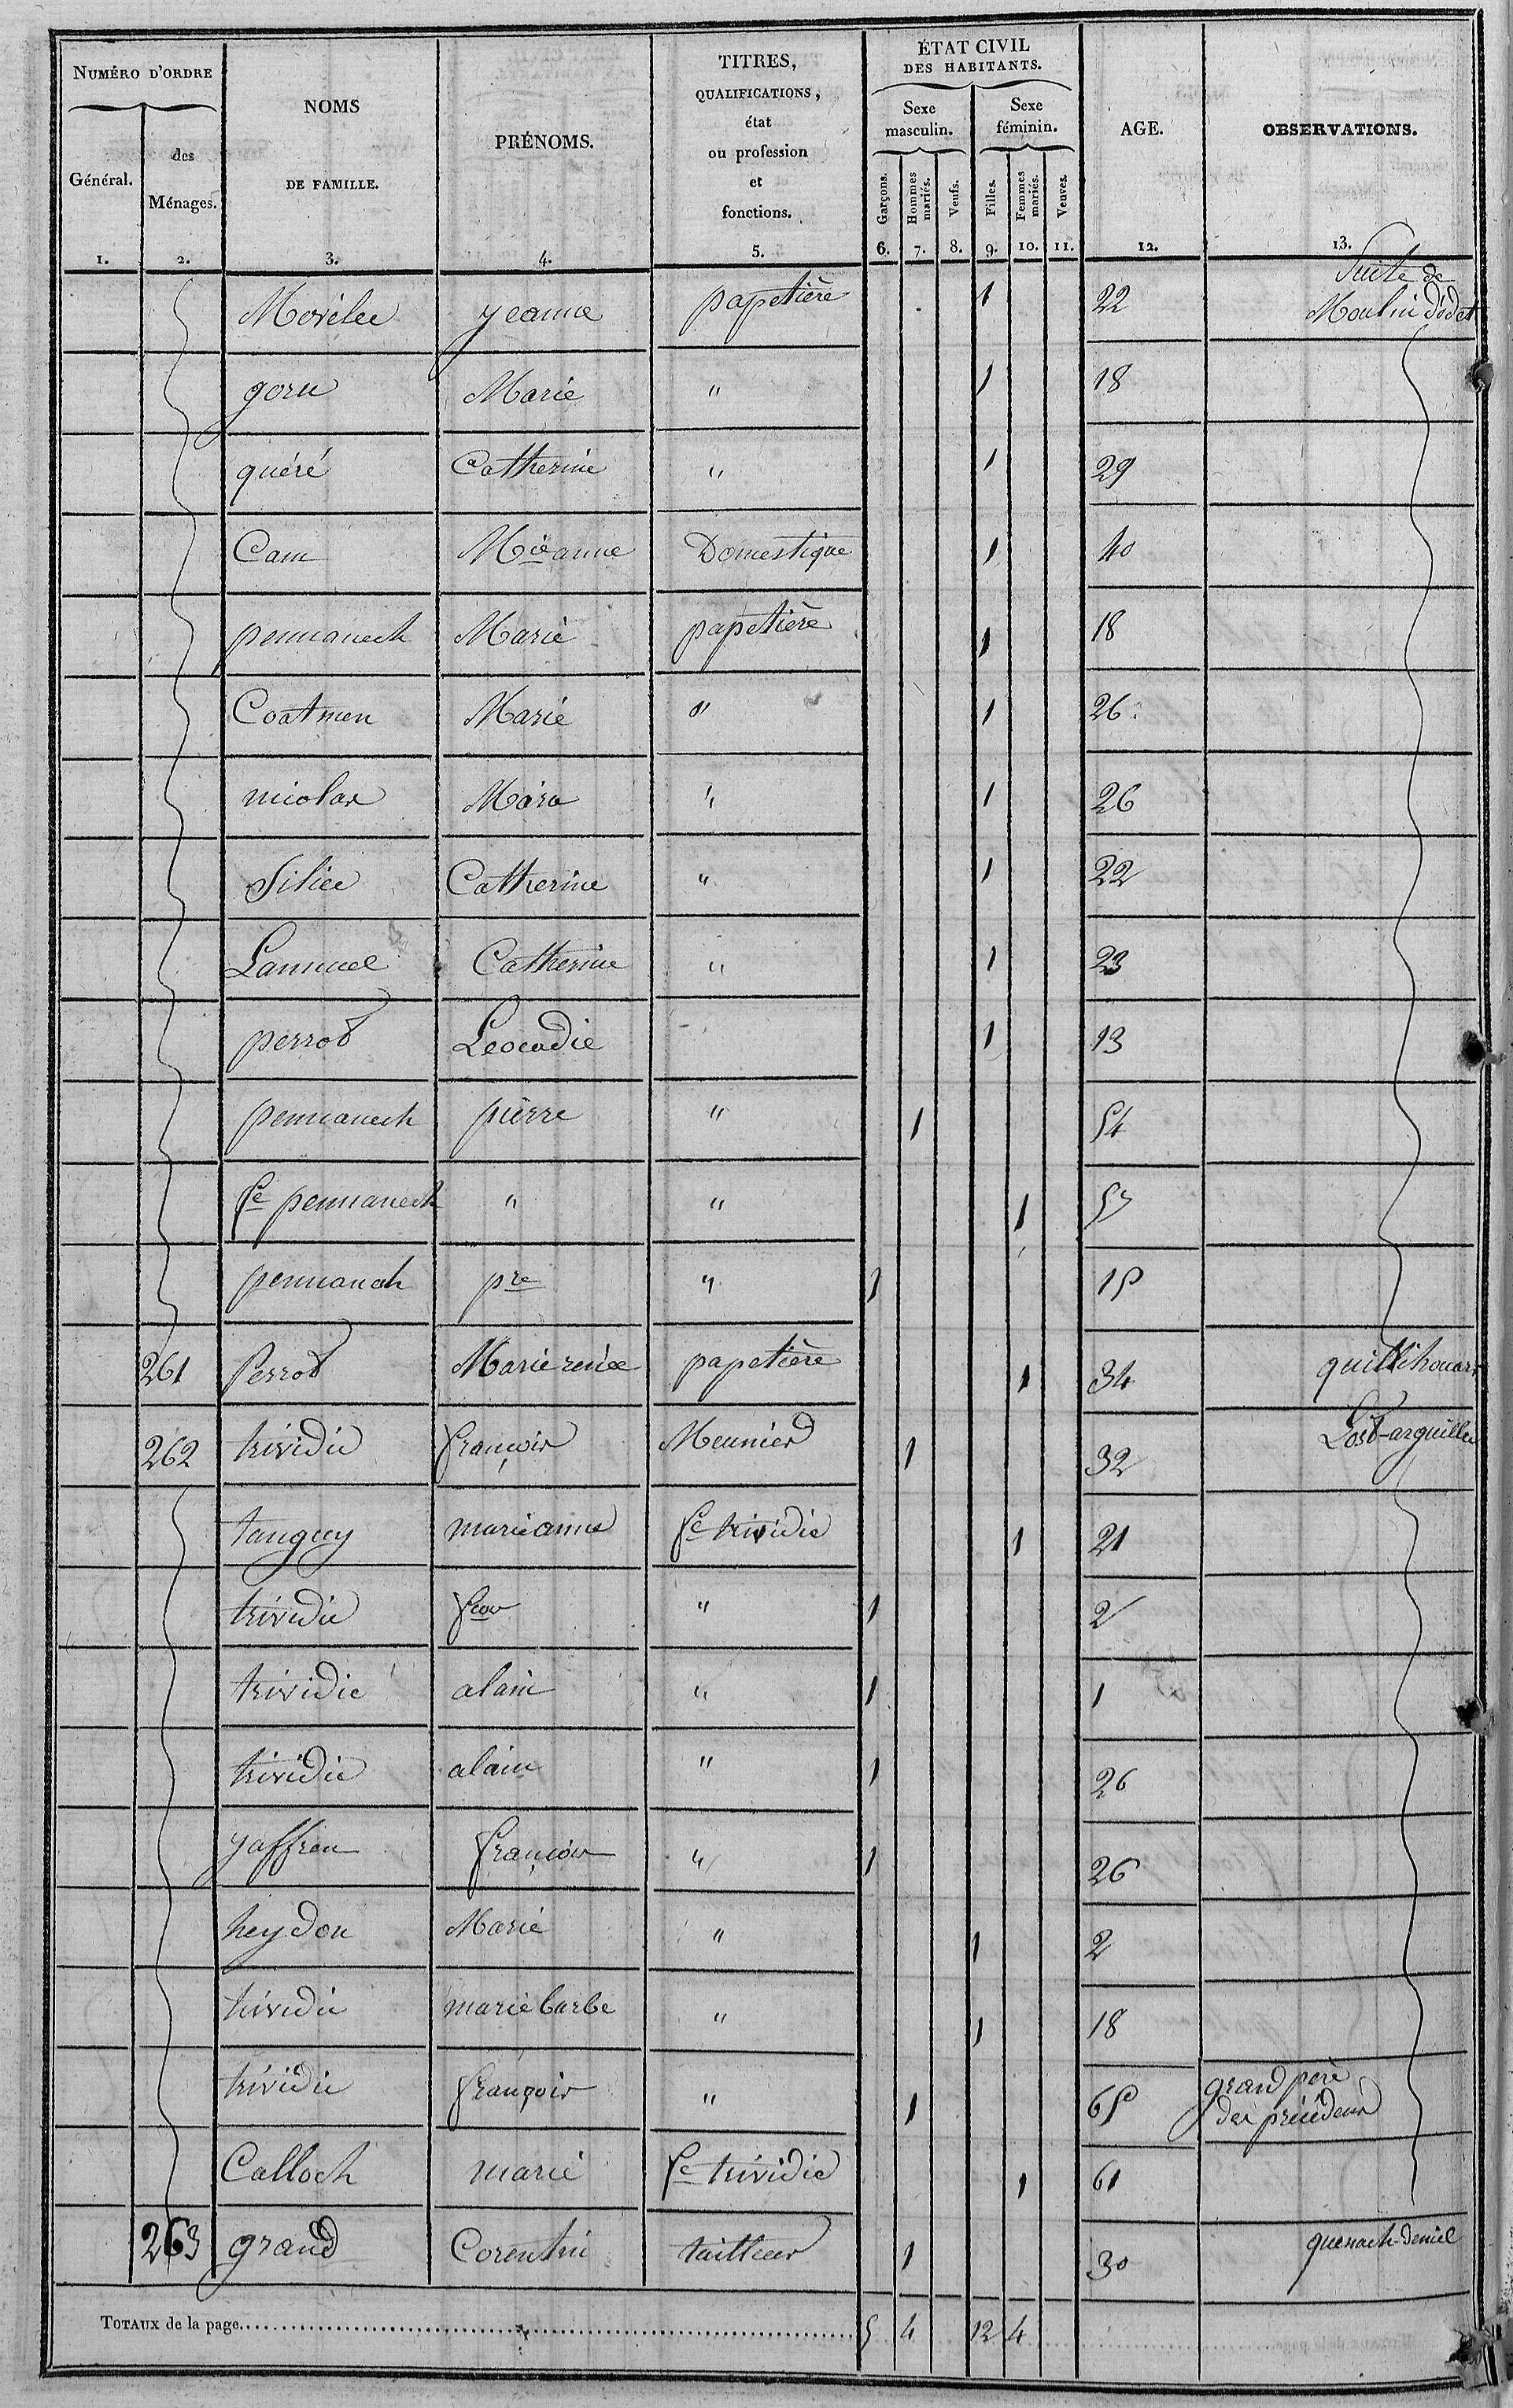 NUMÉRO D'ORDRE
Général.
des
Ménages.
NOMS
DE FAMILLE.
PRÉNOMS.
TITRES,
QUALIFICATIONS,
état
ou profession
et
fonctions.
ÉTAT CIVIL
DES HABITANTS.
Sexe
masculin.
Sexe
féminin.
Garçons.
Hommes
mariés.
Veufs.
Filles.
Femmes
mariés.
Veuves.
AGE.
OBSERVATIONS.
1. 2. 3. 4. 5. 6. 7. 8. 9. 10. 11. 12. 13.
Suite de
yeanne papetière 1 22 Moulin
Marie " 1 18
quéré Catherine " 1 29
Cam Mie anne Domestique 1 40
pennanech Marie papetière 1 18
Coatmen Marie " 1 26
nicolas " 1 26
Catherine " 1 22
Catherine " 1 23
perrot Leocadie 1 13
pennanech pierre " 1 54
fe pennanech " " 1
pennanech pre " 1 15
261 Perrot Marie renée papetière 1 34
262 trividic françois Meunier 1 32
tanguy marie anne fe trividic 1 21
trividic " 1 2
trividic alain " 1 1
trividic alain " 1 26
yaffren françois " 1 26
heydon Marie " 1 2
trividic marie barbe " 1 18
trividic françois " 1 65 grand père
des
Calloch marie fe trividic 1 61
263 grand Corentin tailleur 1 30 quenach-deniel
TOTAUX de la page 5 4 12 4